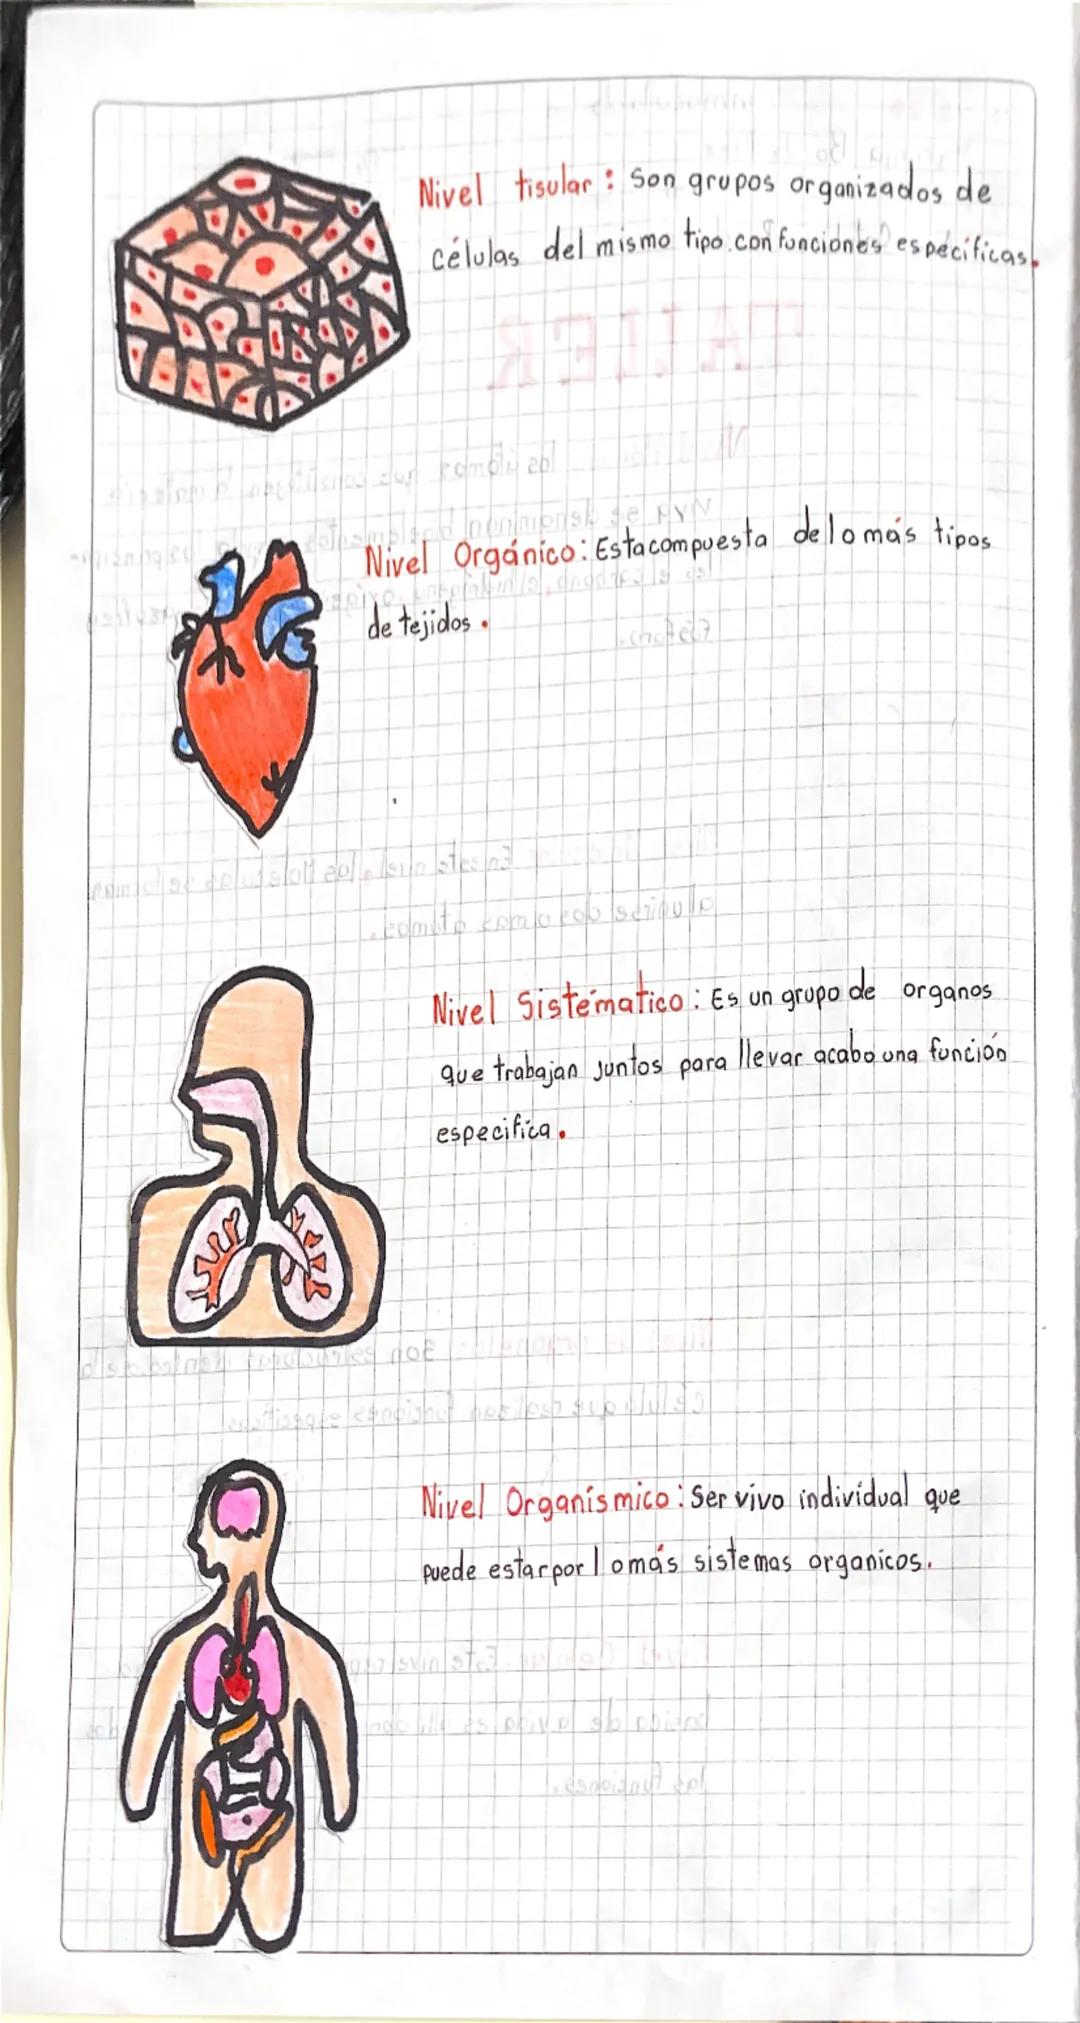 Nivel tisular: Son grupos organizados de
células del mismo tipo con funciones específicas.
TALLER
Nivel Orgánico: Esta compuesta de 1 o más tipos
de tejidos.
Nivel Sistématico: Es un grupo de organos
que trabajan juntos para llevar acabo una función
especifica.
Nivel Organísmico: Ser vivo individual que
puede estar por 1 o más sistemas organicos.